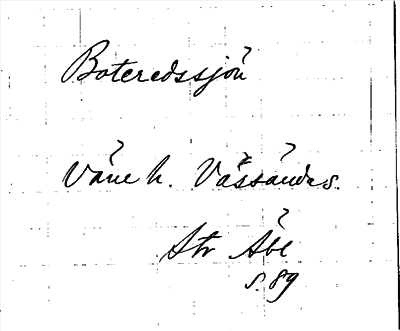 Boteredssjön
Väne h. Vassända s.
Str Åbl
s. 89